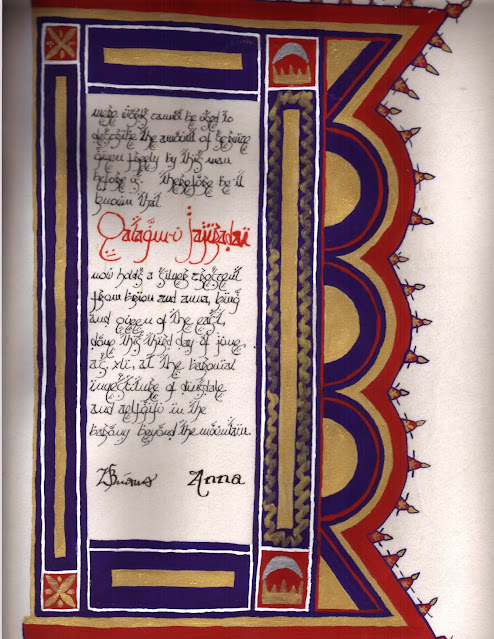 mere words cannot be used to
describe the amount of service
given freely by this man
before us. Therefore be it
known that
now holds a silver crescent
from brion and anna, king
and queen of the east,
done this third day of june,
a.s. xli, at the baronial
investiture of dinsdale
and aelfgifu in the
barony beyond the mountain.
Anna